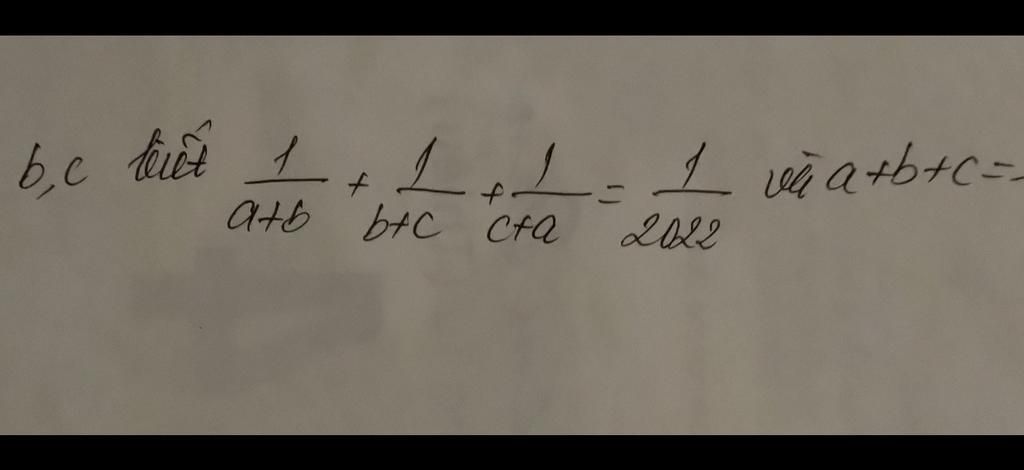 b,c biết 1/(a+b) + 1/(b+c) + 1/(c+a) = 1/2022 và a+b+c=